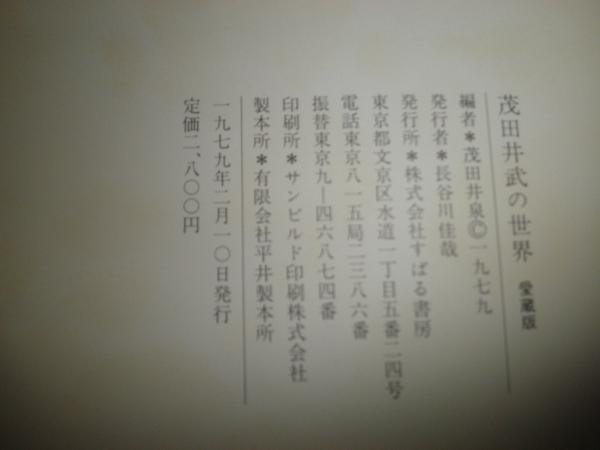 茂田井武の世界 愛蔵版
編者＊茂田井泉Ⓒ一九七九
発行者＊長谷川佳哉
発行所＊株式会社すばる書房
東京都文京区水道一丁目五番二四号
電話東京八一五局二三八六番
振替東京九―四六八七四番
印刷所＊サンビルド印刷株式会社
製本所＊有限会社平井製本所
一九七九年二月一〇日発行
定価二、八〇〇円